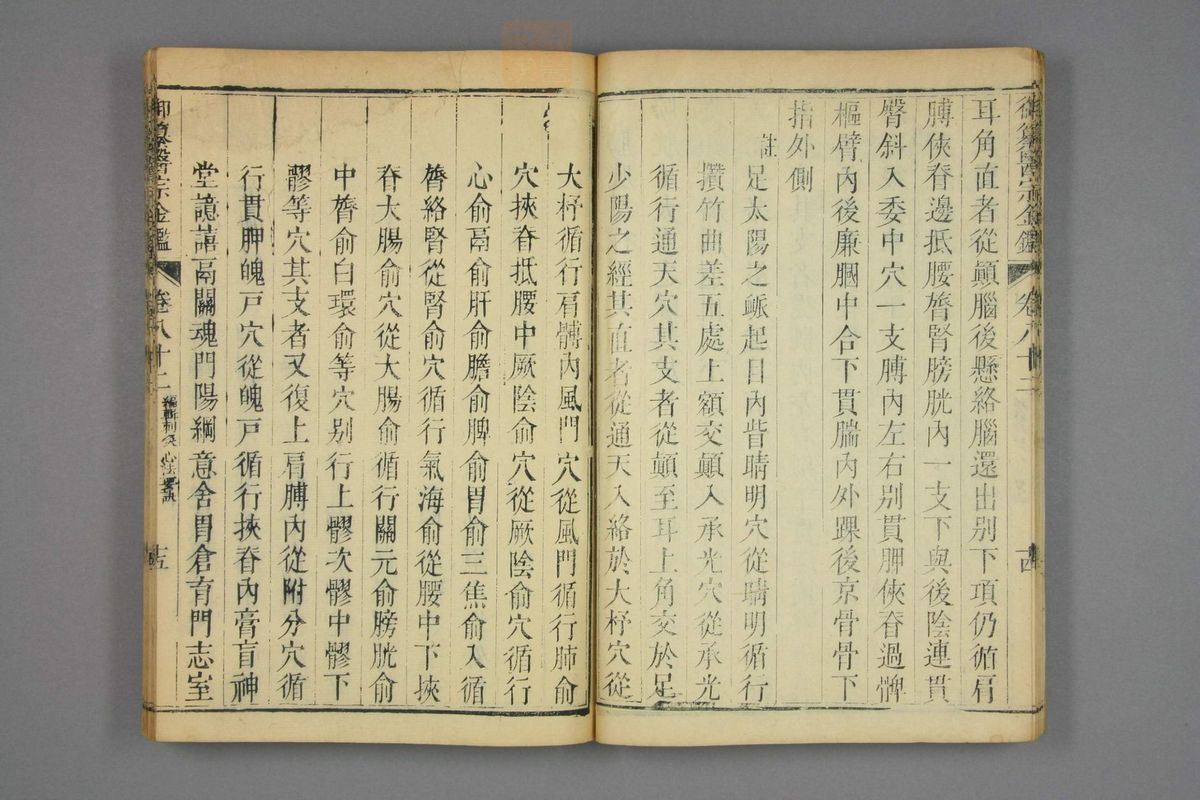 耳角直者從顚腦後懸絡腦還出别下項仍循肩
膊俠脊邊抵腰膂腎膀胱內一支下與後陰連貫
臀斜入委中穴一支膊內左右别貫胛俠脊過髀
樞臂內後廉膕中合下貫腨內外踝後京骨骨下
指外側
註
足太陽之䘑起目內眥睛明穴從睛明循行
攢竹曲差五處上額交顚入承光穴從承光
循行通天穴其支者從顚至耳上角交於足
少陽之經其直者從通天入絡於大杼穴從
大杼循行肩髆內風門穴從風門循行肺俞
穴挾脊抵腰中厥陰俞穴從厥陰俞穴循行
心俞鬲俞肝俞膽俞脾俞胃俞三焦俞入循
膂絡腎從腎俞穴循行氣海俞從腰中下挾
脊大腸俞穴從大腸俞循行關元俞膀胱俞
中膂俞白環俞等穴别行上髎次髎中髎下
髎等穴其支者又復上肩膊內從附分穴循
行貫胛魄戸穴從魄戸循行挾脊內膏肓神
堂譩譆鬲關魂門陽綱意舍胃倉肓門志室
御纂醫宗金鑑
卷八十二
編輯刺灸心法要訣